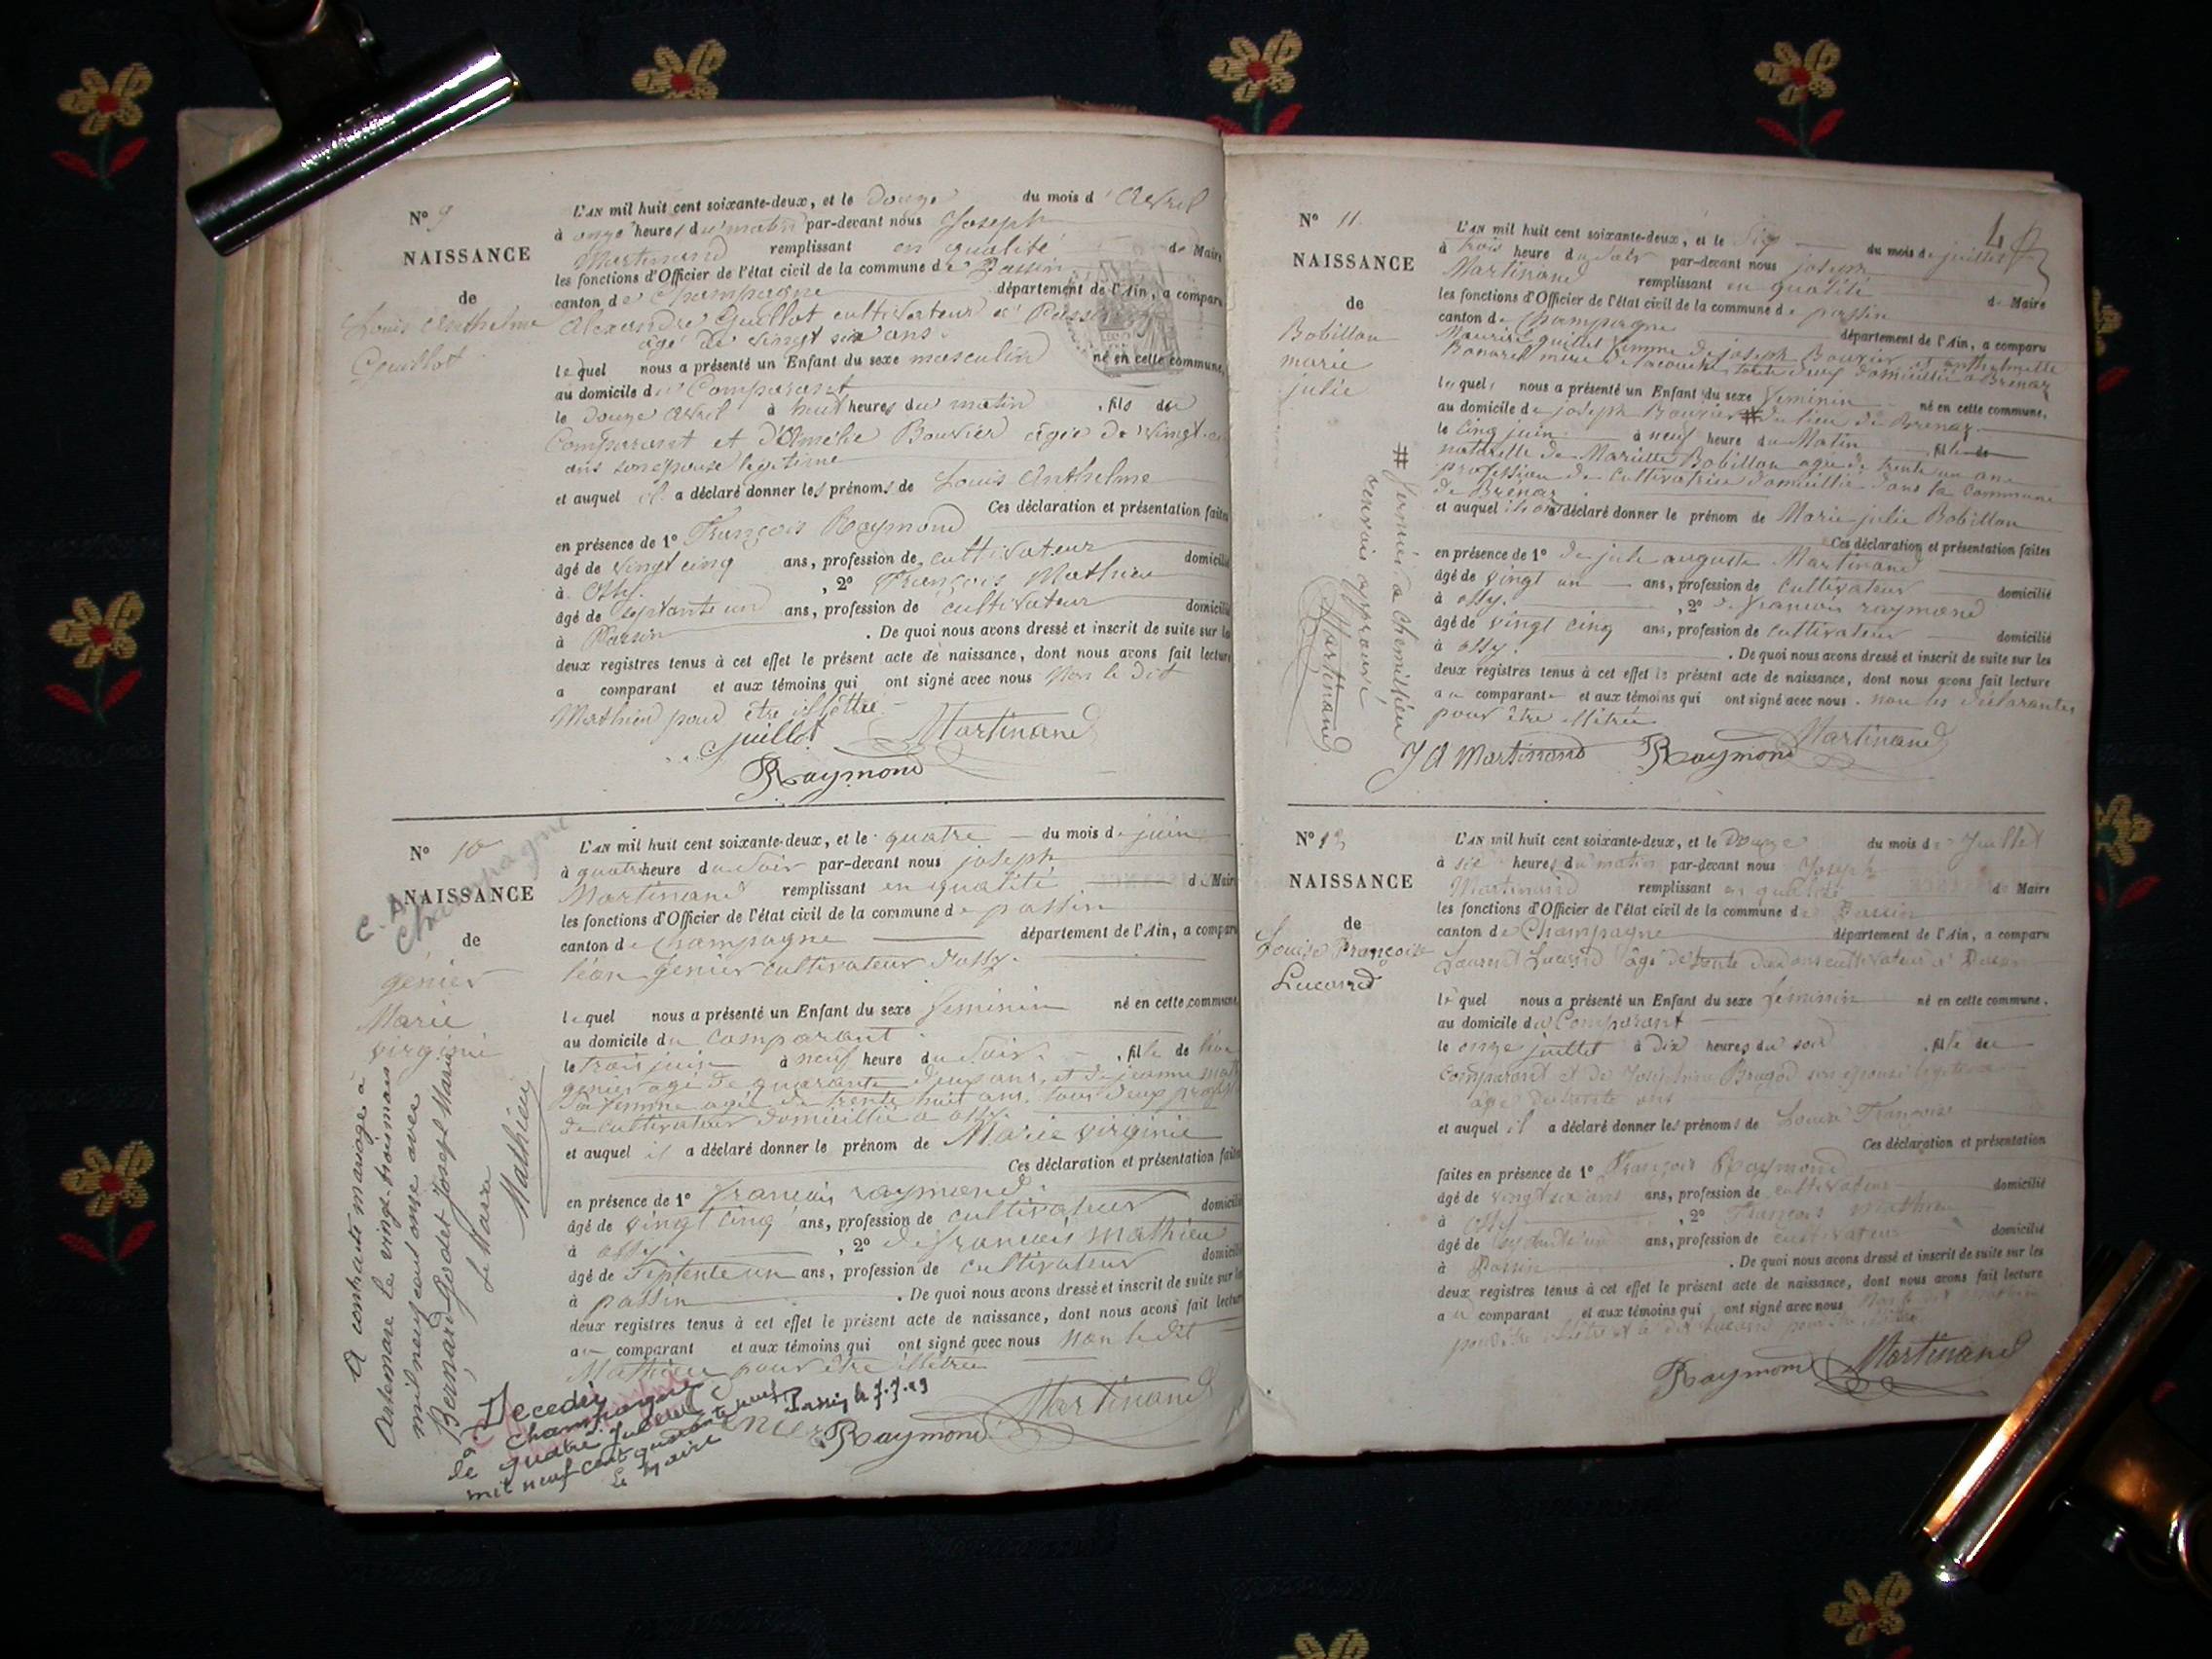 N° 9
NAISSANCE
de
Louis Anthelme
Guillot
L'AN mil huit cent soixante-deux, et le douze du mois d'Avril
à onze heures du matin par-devant nous Joseph
Martinand remplissant en qualité de Maire
les fonctions d'Officier de l'état civil de la commune de Passin
canton de Champagne département de l'Ain, a comparu
Alexandre Guillot cultivateur à Passin
âgé de vingt six ans.
lequel nous a présenté un Enfant du sexe masculin né en cette commune,
au domicile du Comparant
le douze avril à huit heures du matin , fils du
Comparant et d'Amélie Bouvier âgée de vingt
ans son épouse légitime
et auquel il a déclaré donner les prénoms de Louis Anthelme
Ces déclaration et présentation faites
en présence de 1° François Raymond
âgé de vingt cinq ans, profession de cultivateur domicilié
à Ossy. , 2° François Mathieu
âgé de septante un ans, profession de cultivateur domicilié
à Passin . De quoi nous avons dressé et inscrit de suite sur les
deux registres tenus à cet effet le présent acte de naissance, dont nous avons fait lecture
a comparant et aux témoins qui ont signé avec nous Non le dit
Mathieu pour être illétré
Guillot Martinand
Raymond
N° 10
C. A. Champagne
NAISSANCE
de
génier
Marie
virginie
L'AN mil huit cent soixante-deux, et le quatre du mois de juin
à quatre heure du soir par-devant nous joseph
Martinand remplissant en qualité de Maire
les fonctions d'Officier de l'état civil de la commune de passin
canton de Champagne département de l'Ain, a comparu
léon génier cultivateur d'ossy.
lequel nous a présenté un Enfant du sexe feminin né en cette commune,
au domicile du comparant
le trois juin à neuf heure du soir. , fille de léon
genier agé de quarante deux ans, et de jeanne
sa femme agée de trente huit ans. tous deux
de cultivateur domicillié a ossy.
et auquel il a déclaré donner le prénom de Marie virginie
Ces déclaration et présentation faites
en présence de 1° françois raymond.
âgé de vingt cinq ans, profession de cultivateur domicilié
à ossy. , 2° de françois mathieu
âgé de septente un ans, profession de cultivateur domicilié
à passin . De quoi nous avons dressé et inscrit de suite sur les
deux registres tenus à cet effet le présent acte de naissance, dont nous avons fait lecture
au comparant et aux témoins qui ont signé avec nous Non le dit
Mathieu pour être illétrée
Martinand
Raymond
A contracté mariage à
Artemare le vingt-trois mars
mil neuf cent onze avec
Bernard Godet Joseph Marie
Le Maire
Mathieu
Decedée
à Champagne
le quatre Juillet
mil neuf cent quarante neuf
Passin le 7.7.49
Le Maire
N° 11.
NAISSANCE
de
Bobillon
marie
julie
4
L'AN mil huit cent soixante-deux, et le six du mois de juillet
à trois heure du soir par-devant nous joseph
Martinand remplissant en qualité de Maire
les fonctions d'Officier de l'état civil de la commune de passin
canton de Champagne département de l'Ain, a comparu
guillet femme de joseph Bouvier et anthelmette
Bonard toute deux domicillié a Brenaz
laquel nous a présenté un Enfant du sexe feminin né en cette commune,
au domicile de joseph Bouvier # du lieu de Brenaz.
le cinq juin à neuf heure du Matin fille de
naturelle de Mariette Bobillon agée de trente un ans
profession de Cultivatrice domicillié dans la commune
de Brenaz
et auquel a déclaré donner le prénom de Marie julie Bobillon
Ces déclaration et présentation faites
en présence de 1° de jule auguste Martinand
âgé de vingt un ans, profession de cultivateur domicilié
à ossy. , 2° de françois raymond
âgé de vingt cinq ans, profession de cultivateur domicilié
à ossy. . De quoi nous avons dressé et inscrit de suite sur les
deux registres tenus à cet effet le présent acte de naissance, dont nous avons fait lecture
au comparante et aux témoins qui ont signé avec nous. non les déclarantes
pour être illétrée
J A Martinand Raymond Martinand
# fermier a chemillieu
renvois approuvé
Martinand
N° 12
NAISSANCE
de
Louise Françoise
Lucand
L'AN mil huit cent soixante-deux, et le Douze du mois de Juillet
à six heures du matin par-devant nous Joseph
Martinand remplissant en qualité de Maire
les fonctions d'Officier de l'état civil de la commune de Passin
canton de Champagne département de l'Ain, a comparu
Laurent Lucand âgé de trente deux ans cultivateur à Passin
lequel nous a présenté un Enfant du sexe feminin né en cette commune.
au domicile du Comparant
le onze juillet à dix heures du soir , fille du
comparant et de Joséphine son épouse légitime
âgée de trente ans
et auquel il a déclaré donner les prénoms de Louise Françoise
Ces déclaration et présentation
faites en présence de 1° François Raymond
âgé de vingt six ans ans, profession de cultivateur domicilié
à Ossy , 2° François Mathieu
âgé de septante un ans, profession de cultivateur domicilié
à Passin . De quoi nous avons dressé et inscrit de suite sur les
deux registres tenus à cet effet le présent acte de naissance, dont nous avons fait lecture
au comparant et aux témoins qui ont signé avec nous Non le dit Mathieu
pour être illétré et le dit Lucand
Raymond Martinand